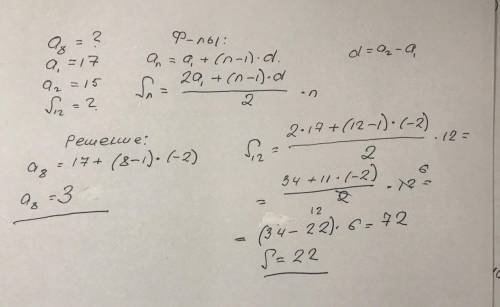 a₈ = ?
a₁ = 17
a₂ = 15
S₁₂ = ?
Ф-лы:
aₙ = a₁ + (n-1)·d.
Sₙ = (2a₁ + (n-1)·d)/2 · n
d = a₂ - a₁
Решение:
a₈ = 17 + (8-1)·(-2)
a₈ = 3
S₁₂ = (2·17 + (12-1)·(-2))/2 · 12 =
= (34 + 11·(-2))/2 · 12 6 =
12
= (34 - 22)·6 = 72
S = 22